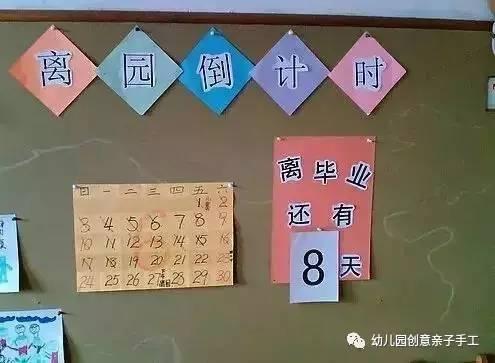 离园倒计时
日 一 二 三 四 五 六
1 2
3 4 5 6 7 8 9
10 11 12 13 14 15 16
17 18 19 20 21 22 23
24 25 26 27 28 29 30
离毕业
还有
8天
幼儿园创意亲子手工